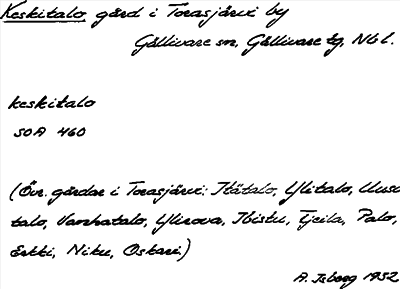 Keskitalo, gård i Torasjärvi by
Gällivare sn, Gällivare tg, Nbl.
keskitalo
SOA 460
(Övr. gårdar i Torasjärvi: Itätalo, Ylitalo, Uusi
talo, Vanhatalo, Ylirova, Tjeila, Palo,
Erkki, Niku, Oskari)
A. Isberg 1932